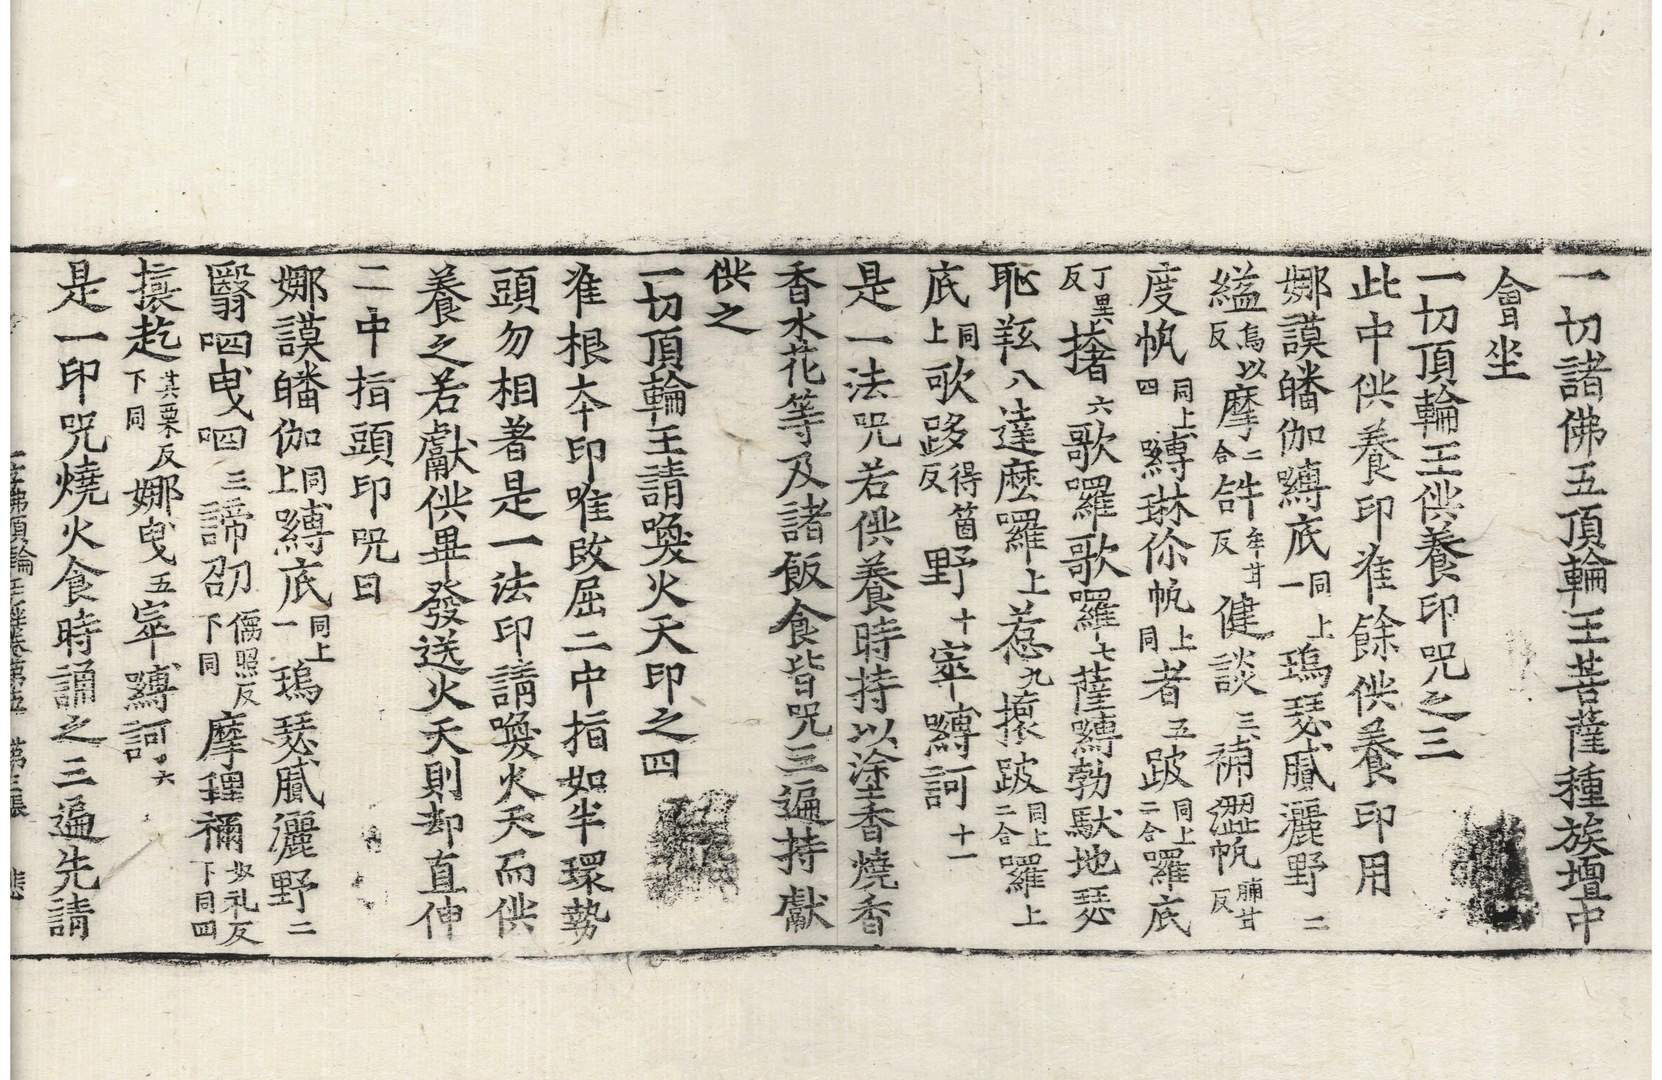 一切諸佛五頂輪王菩薩種族壇中
會坐
一切頂輪王供養印呪之三
此中供養印准餘供養印用
娜謨皤伽嚩底同上一瑦瑟膩灑野二
縊烏以反摩二合𤙖牟甘反健談三補澀帆脯甘反
度帆同上四嚩琳你帆同上者五跛同上二合羅底
丁異反撦六歌囉歌囉七薩嚩勃馱地瑟
耻𦍕八達麽囉上惹九攘跛同上二合囉上
底同上歌跢得箇反野十寧嚩訶十一
是一法呪若供養時持以塗香燒香
香水花等及諸飯食皆呪三遍持獻
供之
一切頂輪王請喚火天印之四
准根本印唯改屈二中指如半環勢
頭勿相著是一法印請喚火天而供
養之若獻供畢發送火天則却直伸
二中指頭印呪曰
娜謨皤伽同上嚩底同上一瑦瑟膩灑野二
翳呬曳呬三諦卲儒照反下同摩理禰奴礼反下同四
攘訖其栗反下同娜曳五寧嚩訶六
是一印呪燒火食時誦之三遍先請